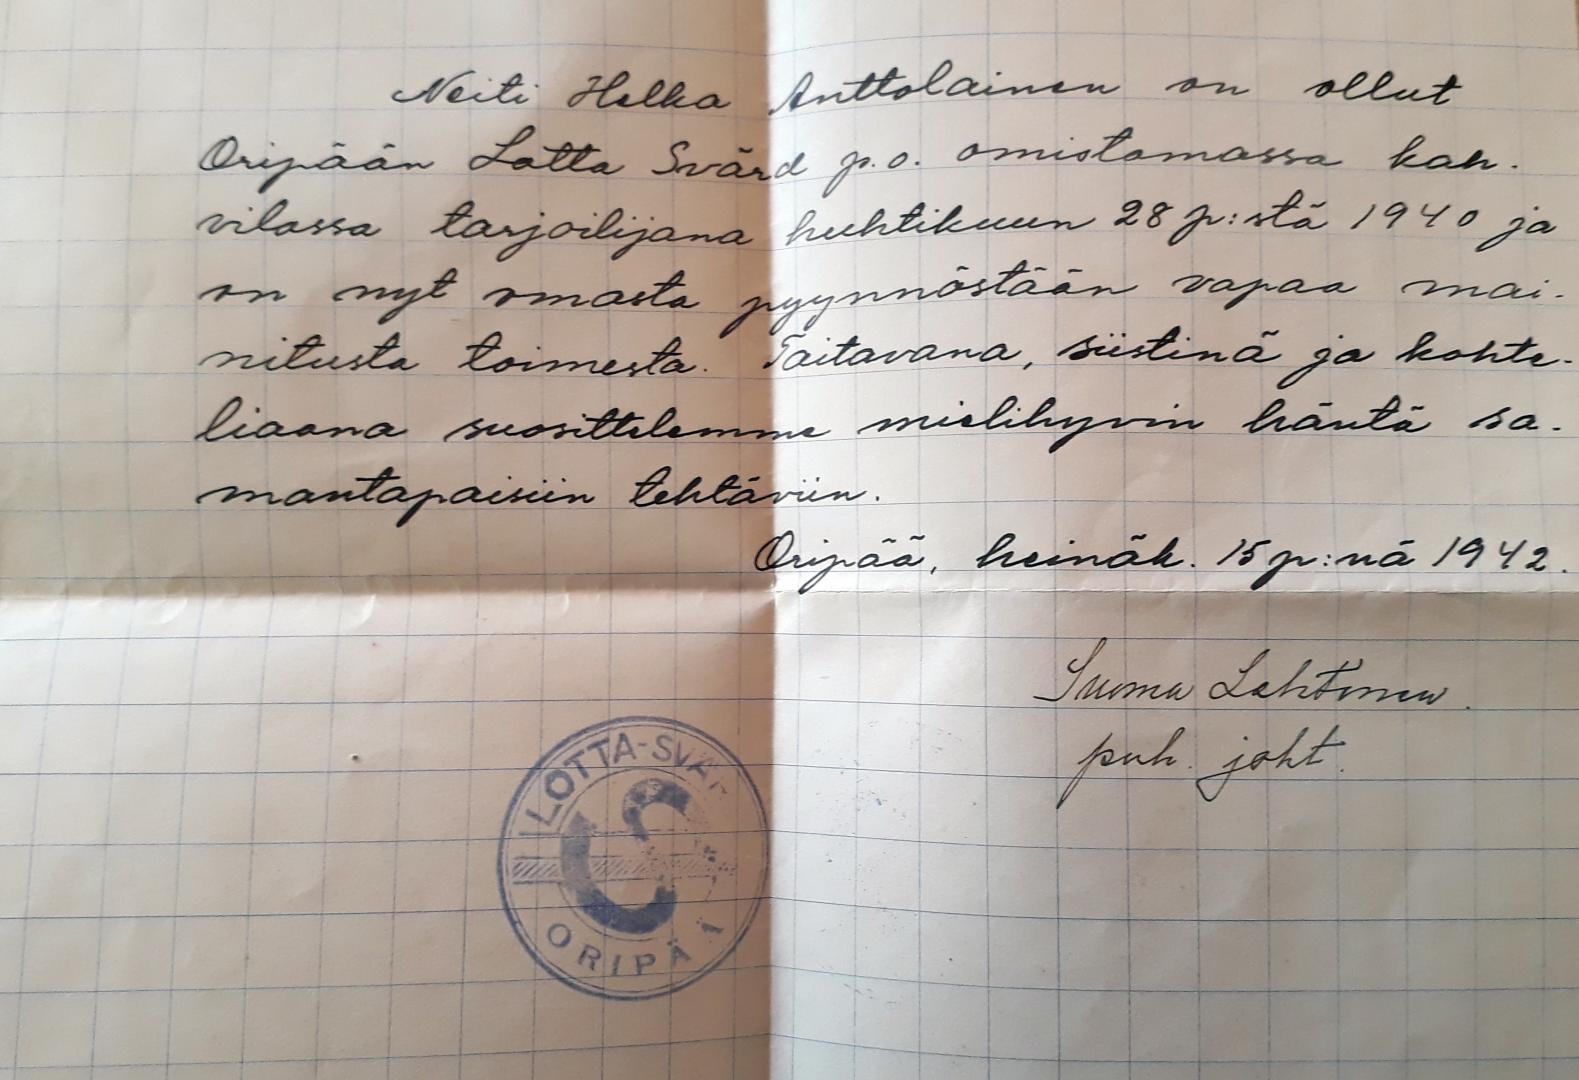 Neiti Helka Anttolainen on ollut
Oripään Lotta Svärd p.o. omistamassa kah-
vilassa tarjoilijana huhtikuun 28 p:stä 1940 ja
on nyt omasta pyynnöstään vapaa mai-
nitusta toimesta. Taitavana, siistinä ja kohte-
liaana suosittelemme mielihyvin häntä sa-
mantapaisiin tehtäviin.
Oripää, heinäk. 15 p:nä 1942.
Suoma Lehtonen
puh. joht.
LOTTA-SVÄR
LS
ORIPÄ